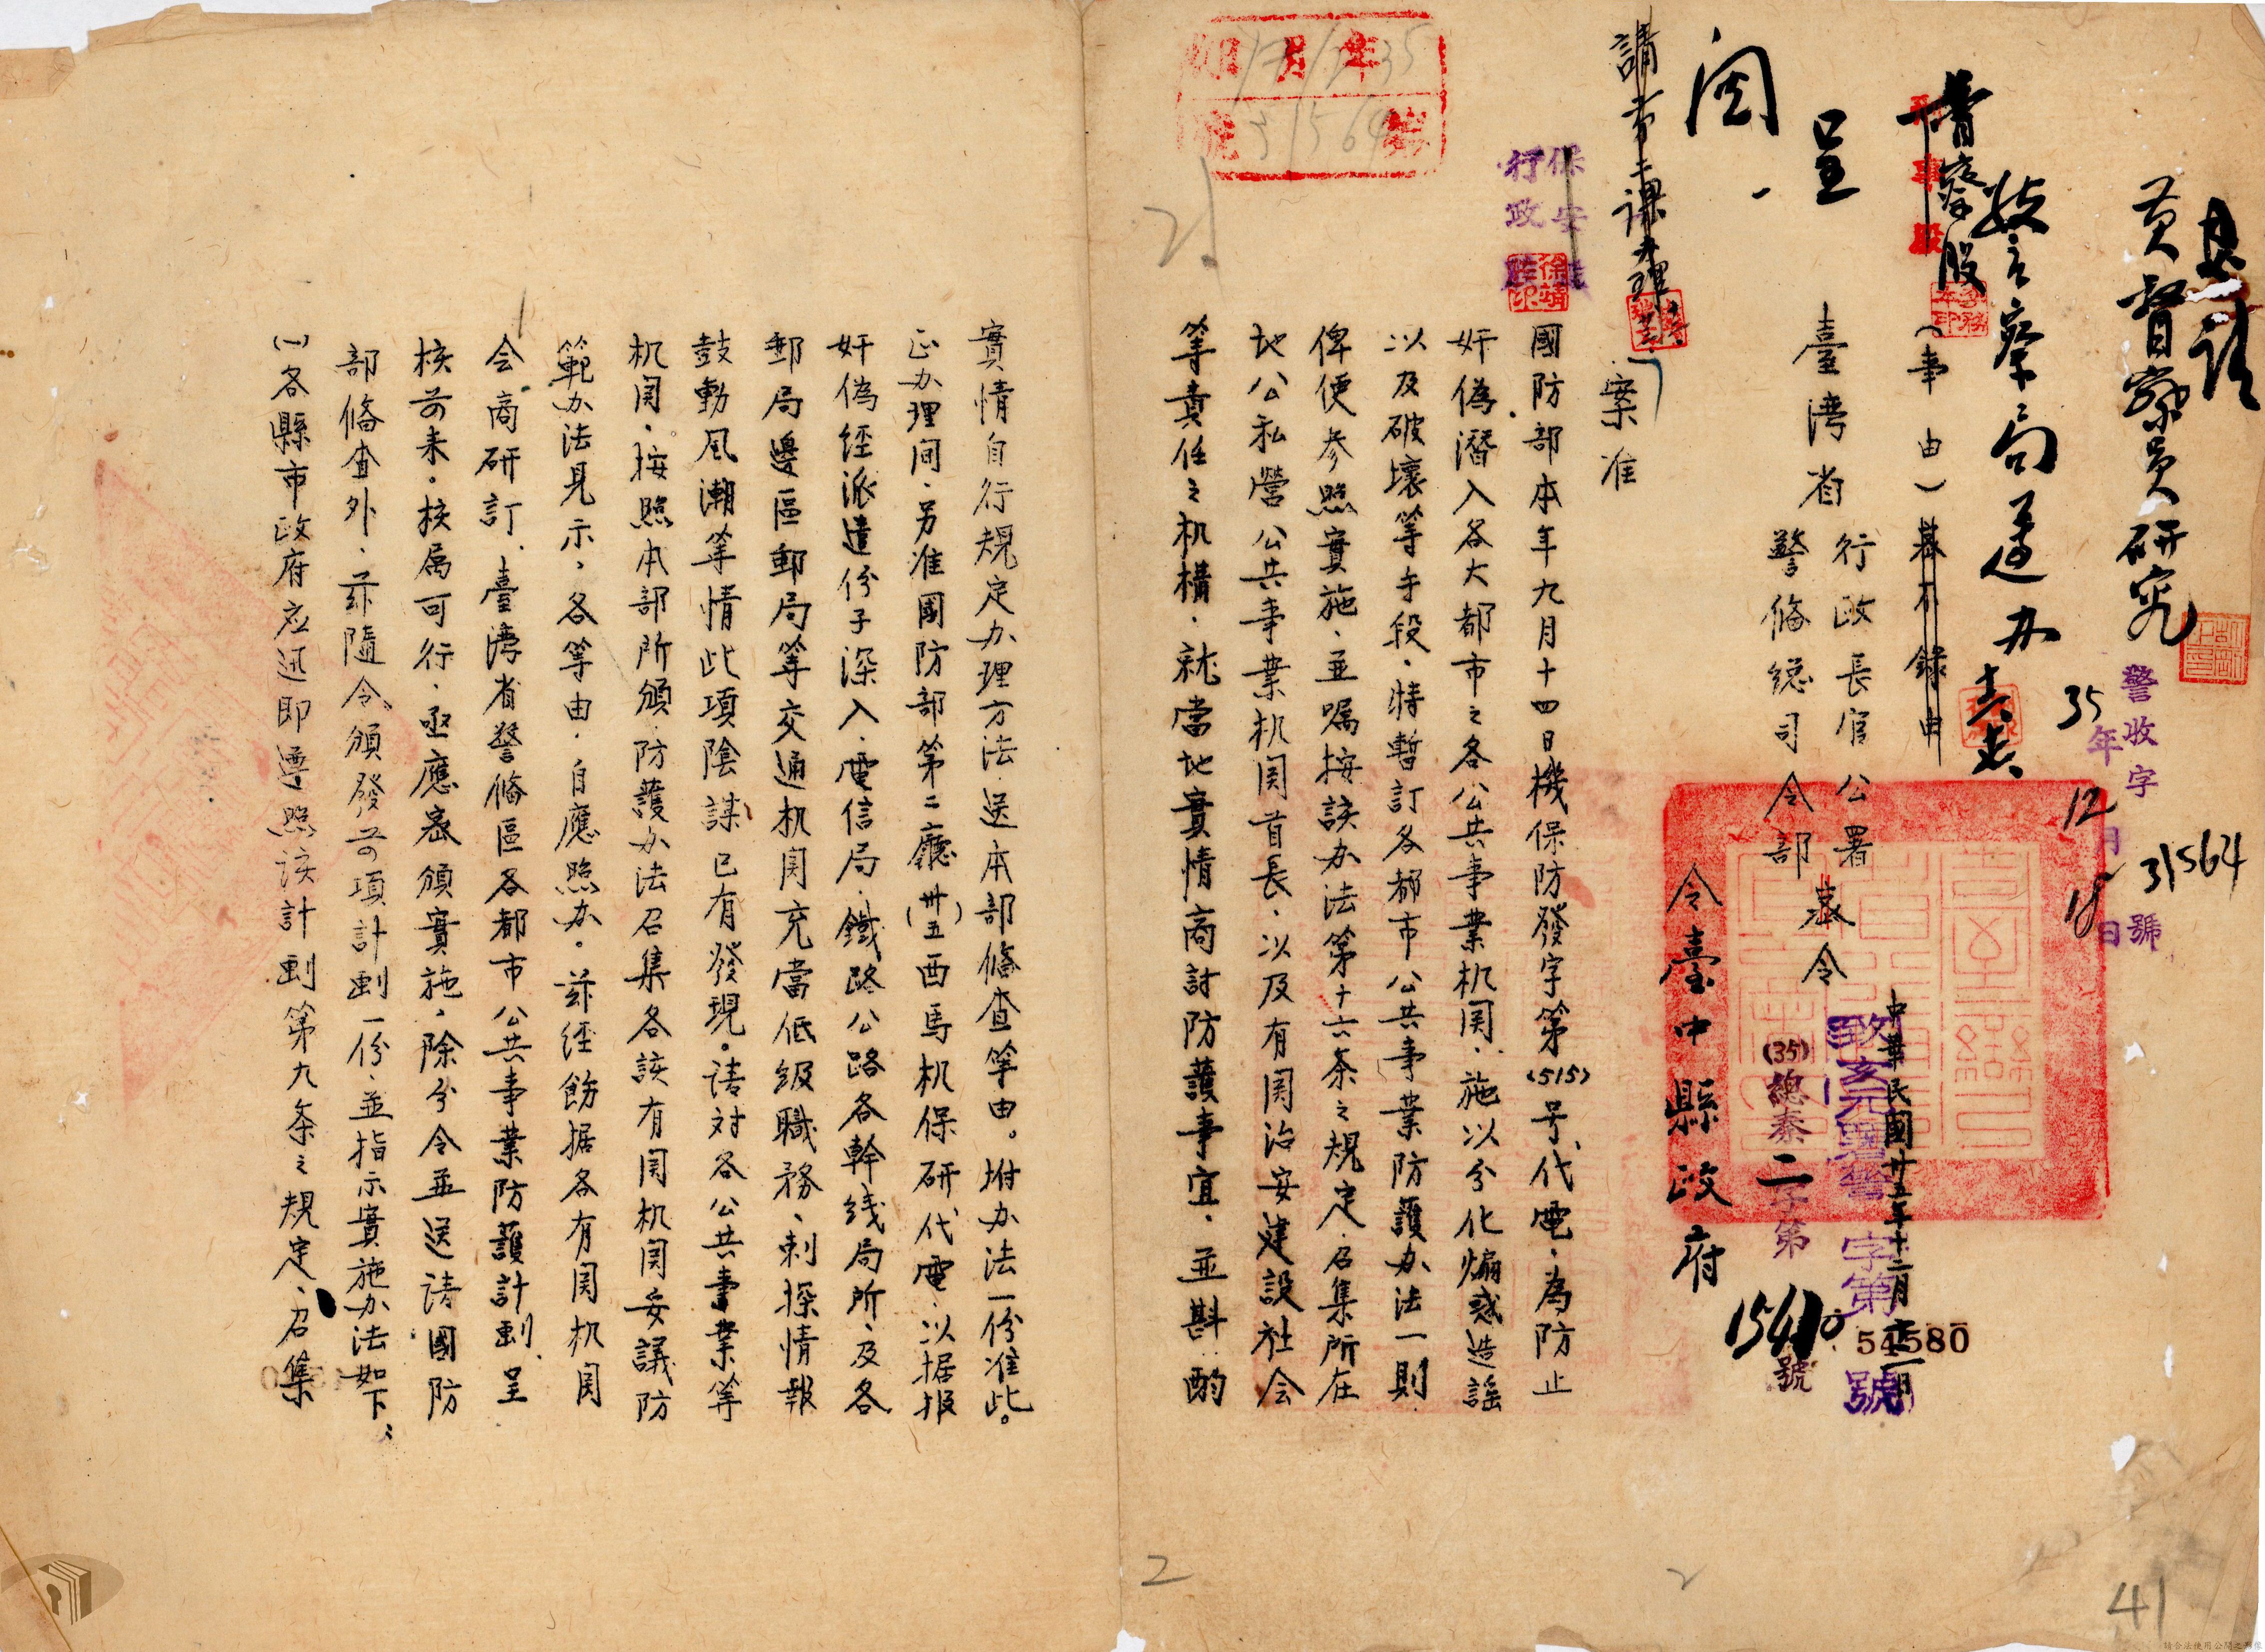 黃督察員研究
警察局速办
警察股
呈
閱
請第二課办理
警收字
31564號
35年12月18日
(事由)甚不錄由
臺湾省行政長官公署
警俻総司令部
密令
中華民國卅五年十二月
致亥元署警字第54580號
(35)總泰二字第15410號
令臺中縣政府
年月
號31564
保安
行政
徐靖
案准
國防部本年九月十四日機保防發字第(515)号代電、為防止
奸偽潛入各大都市之各公共事業机関、施以分化煽惑造謠
以及破壞等手段、特暫訂各都市公共事業防護办法一則
俾便参照實施、並嘱按該办法第十六条之規定、召集所在
地公私營公共事業机関首長、以及有関治安建設社会
等責任之机構、就當地實情商討防護事宜、並斟酌
實情自行規定办理方法、送本部俻查等由。坿办法一份准此。
正办理间、另准國防部第二廳(卅五)酉馬机保研代電、以据报
奸偽經派遣份子深入、電信局、鐵路公路各幹线局所、及各
郵局邊區郵局等交通机関充當低级職務、刺探情報
鼓動風潮等情此項陰謀已有發現。请対各公共事業等
机関、按照本部所頒防護办法召集各該有関机関妥議防
範办法見示、各等由、自應照办。茲經飭据各有関机関
会商研訂、臺湾省警俻區各都市公共事業防護計劃、呈
核前来。核屬可行、亟應密頒實施、除分令並送请國防
部俻查外、茲隨令頒發前項計劃一份、並指示實施办法如下：
(一)各縣市政府应迅即遵照该計劃第九条之規定、召集
2
2
41